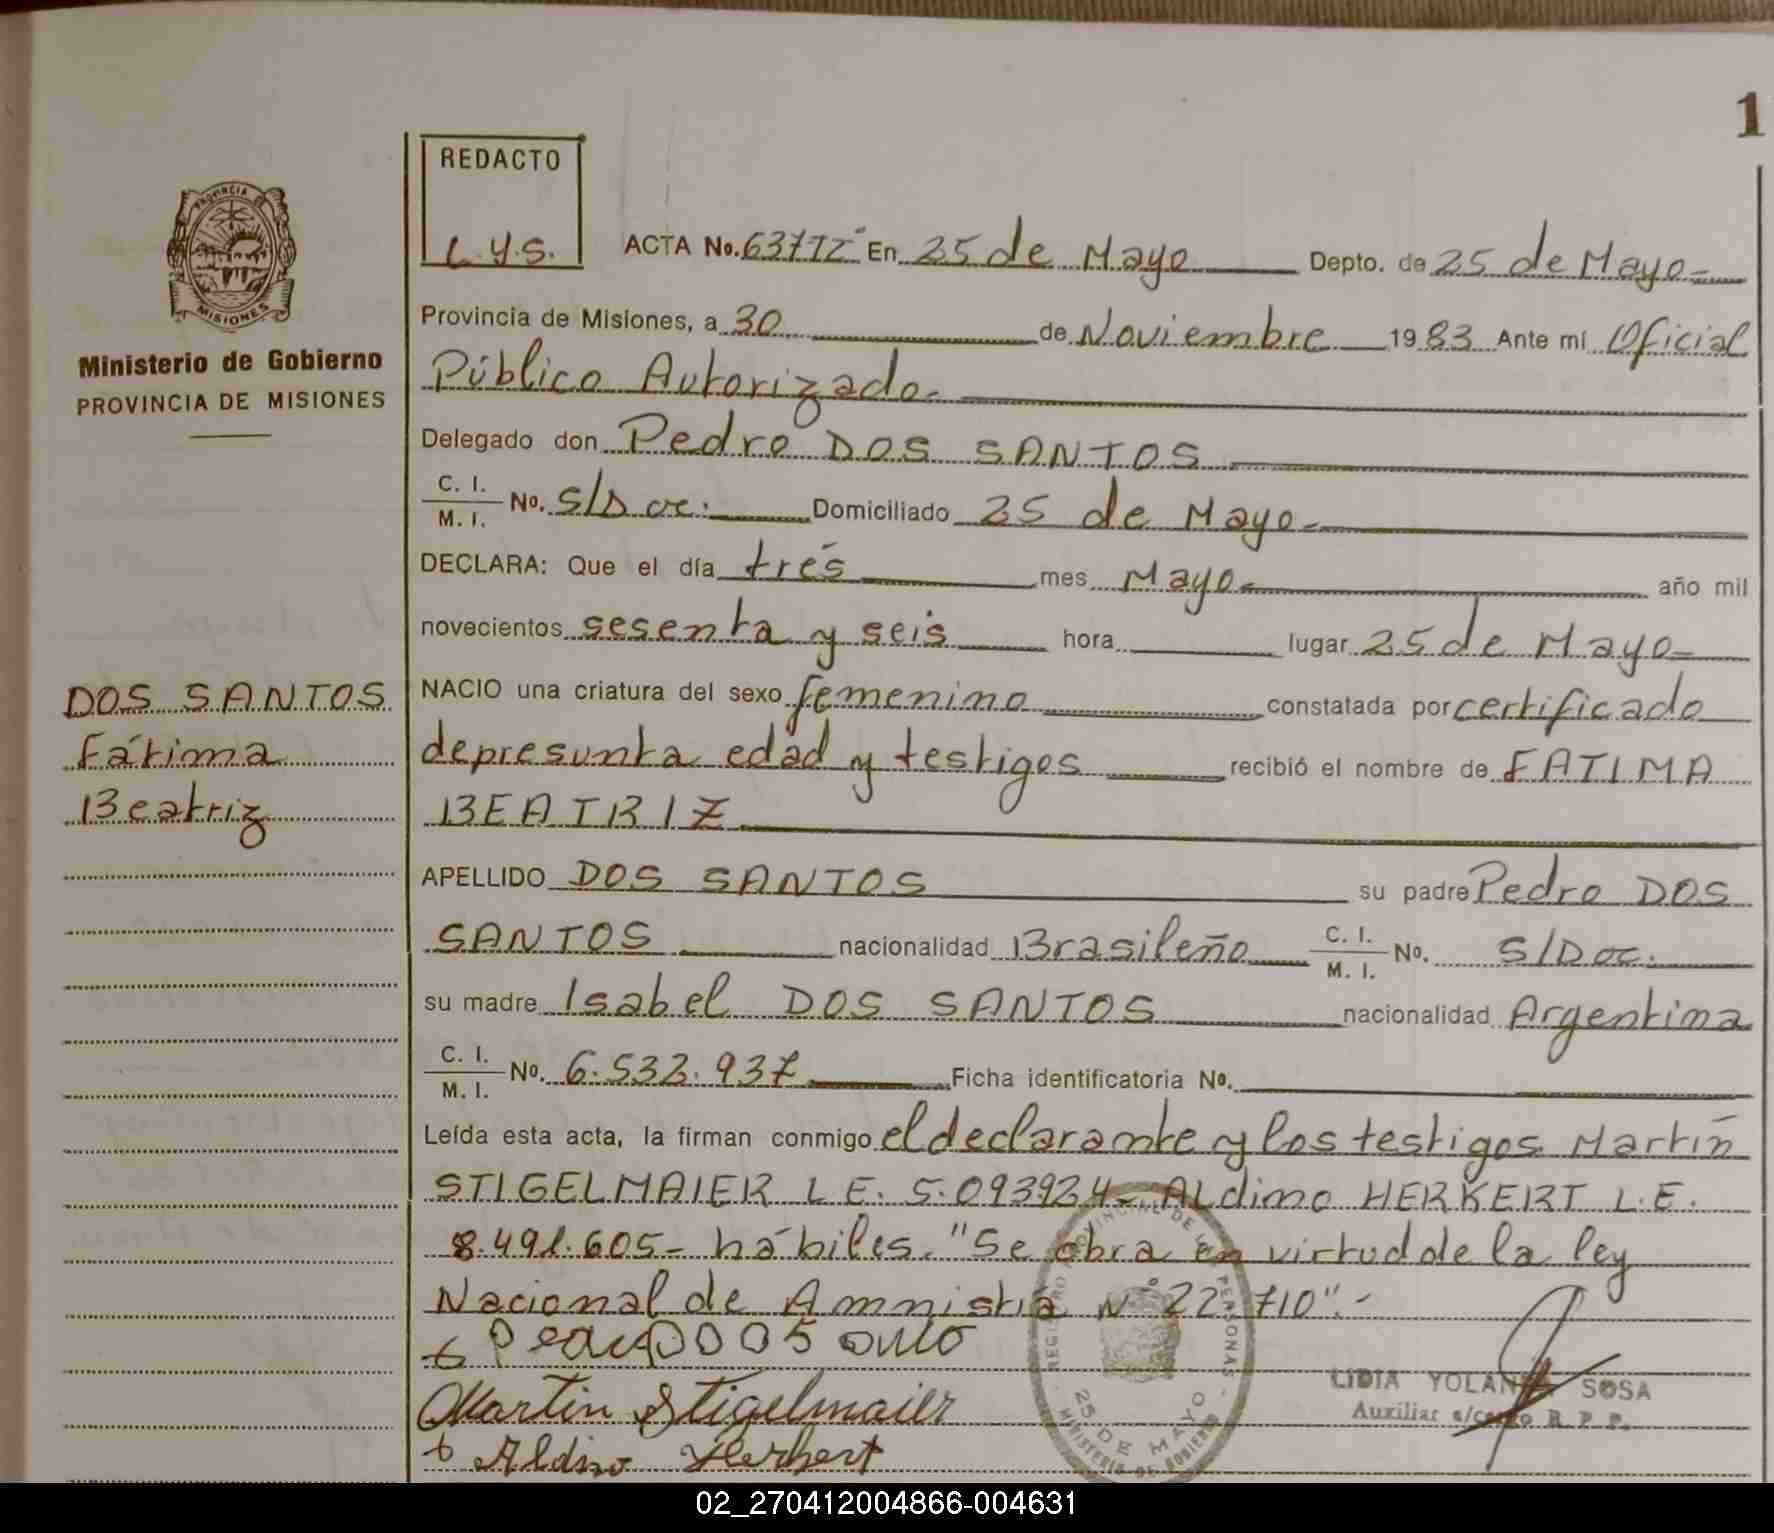 1
REDACTO
L.Y.S.
PROVINCIA DE
MISIONES
Ministerio de Gobierno
PROVINCIA DE MISIONES
ACTA No. En 25 de Mayo Depto. de 25 de Mayo
Provincia de Misiones, a 30 de Noviembre 1983 Ante mí Oficial
Público Autorizado.
Delegado don Pedro DOS SANTOS
C. I.
M. I. No. S/Doc. Domiciliado 25 de Mayo
DECLARA: Que el día trés mes Mayo año mil
novecientos sesenta y seis hora lugar 25 de Mayo
NACIO una criatura del sexo femenino constatada por certificado
de presunta edad y testigos recibió el nombre de FATIMA
BEATRIZ
DOS SANTOS
Fátima
Beatriz
APELLIDO DOS SANTOS su padre Pedro DOS
SANTOS nacionalidad Brasileño C. I.
M. I. No. S/Doc.
su madre Isabel DOS SANTOS nacionalidad Argentina
C. I.
M. I. No. 6.532.937 Ficha identificatoria No.
Leída esta acta, la firman conmigo el declarante y los testigos Martín
STIGELMAIER L.E. 5.093924- ALdino HERKERT L.E.
8.491.605- hábiles. "Se obra en virtud de la ley
Nacional de Amnistía Nº 22.710".-
Martin Stigelmaier
Aldino Herbert
REGISTRO PROVINCIAL DE LAS PERSONAS
25 DE MAYO
MINISTERIO DE GOBIERNO
LIDIA YOLANDA SOSA
Auxiliar a/cargo R. P. P.
02_270412004866-004631